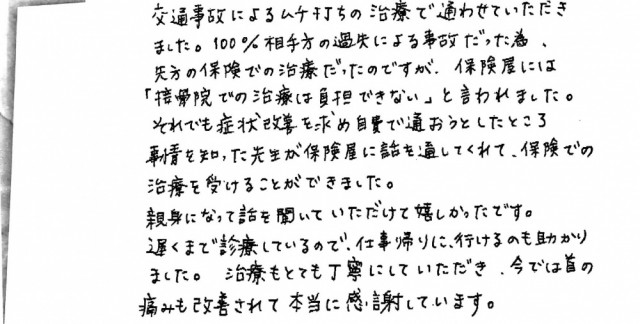 交通事故によるムチ打ちの治療で通わせていただき
ました。100%相手方の過失による事故だった為、
先方の保険での治療だったのですが、保険屋には
「接骨院での治療は負担できない」と言われました。
それでも症状改善を求め自費で通おうとしたところ
事情を知った先生が保険屋に話を通してくれて、保険での
治療を受けることができました。
親身になって話を聞いていただけて嬉しかったです。
遅くまで診療しているので、仕事帰りに、行けるのも助かり
ました。 治療もとても丁寧にしていただき、今では首の
痛みも改善されて本当に感謝しています。